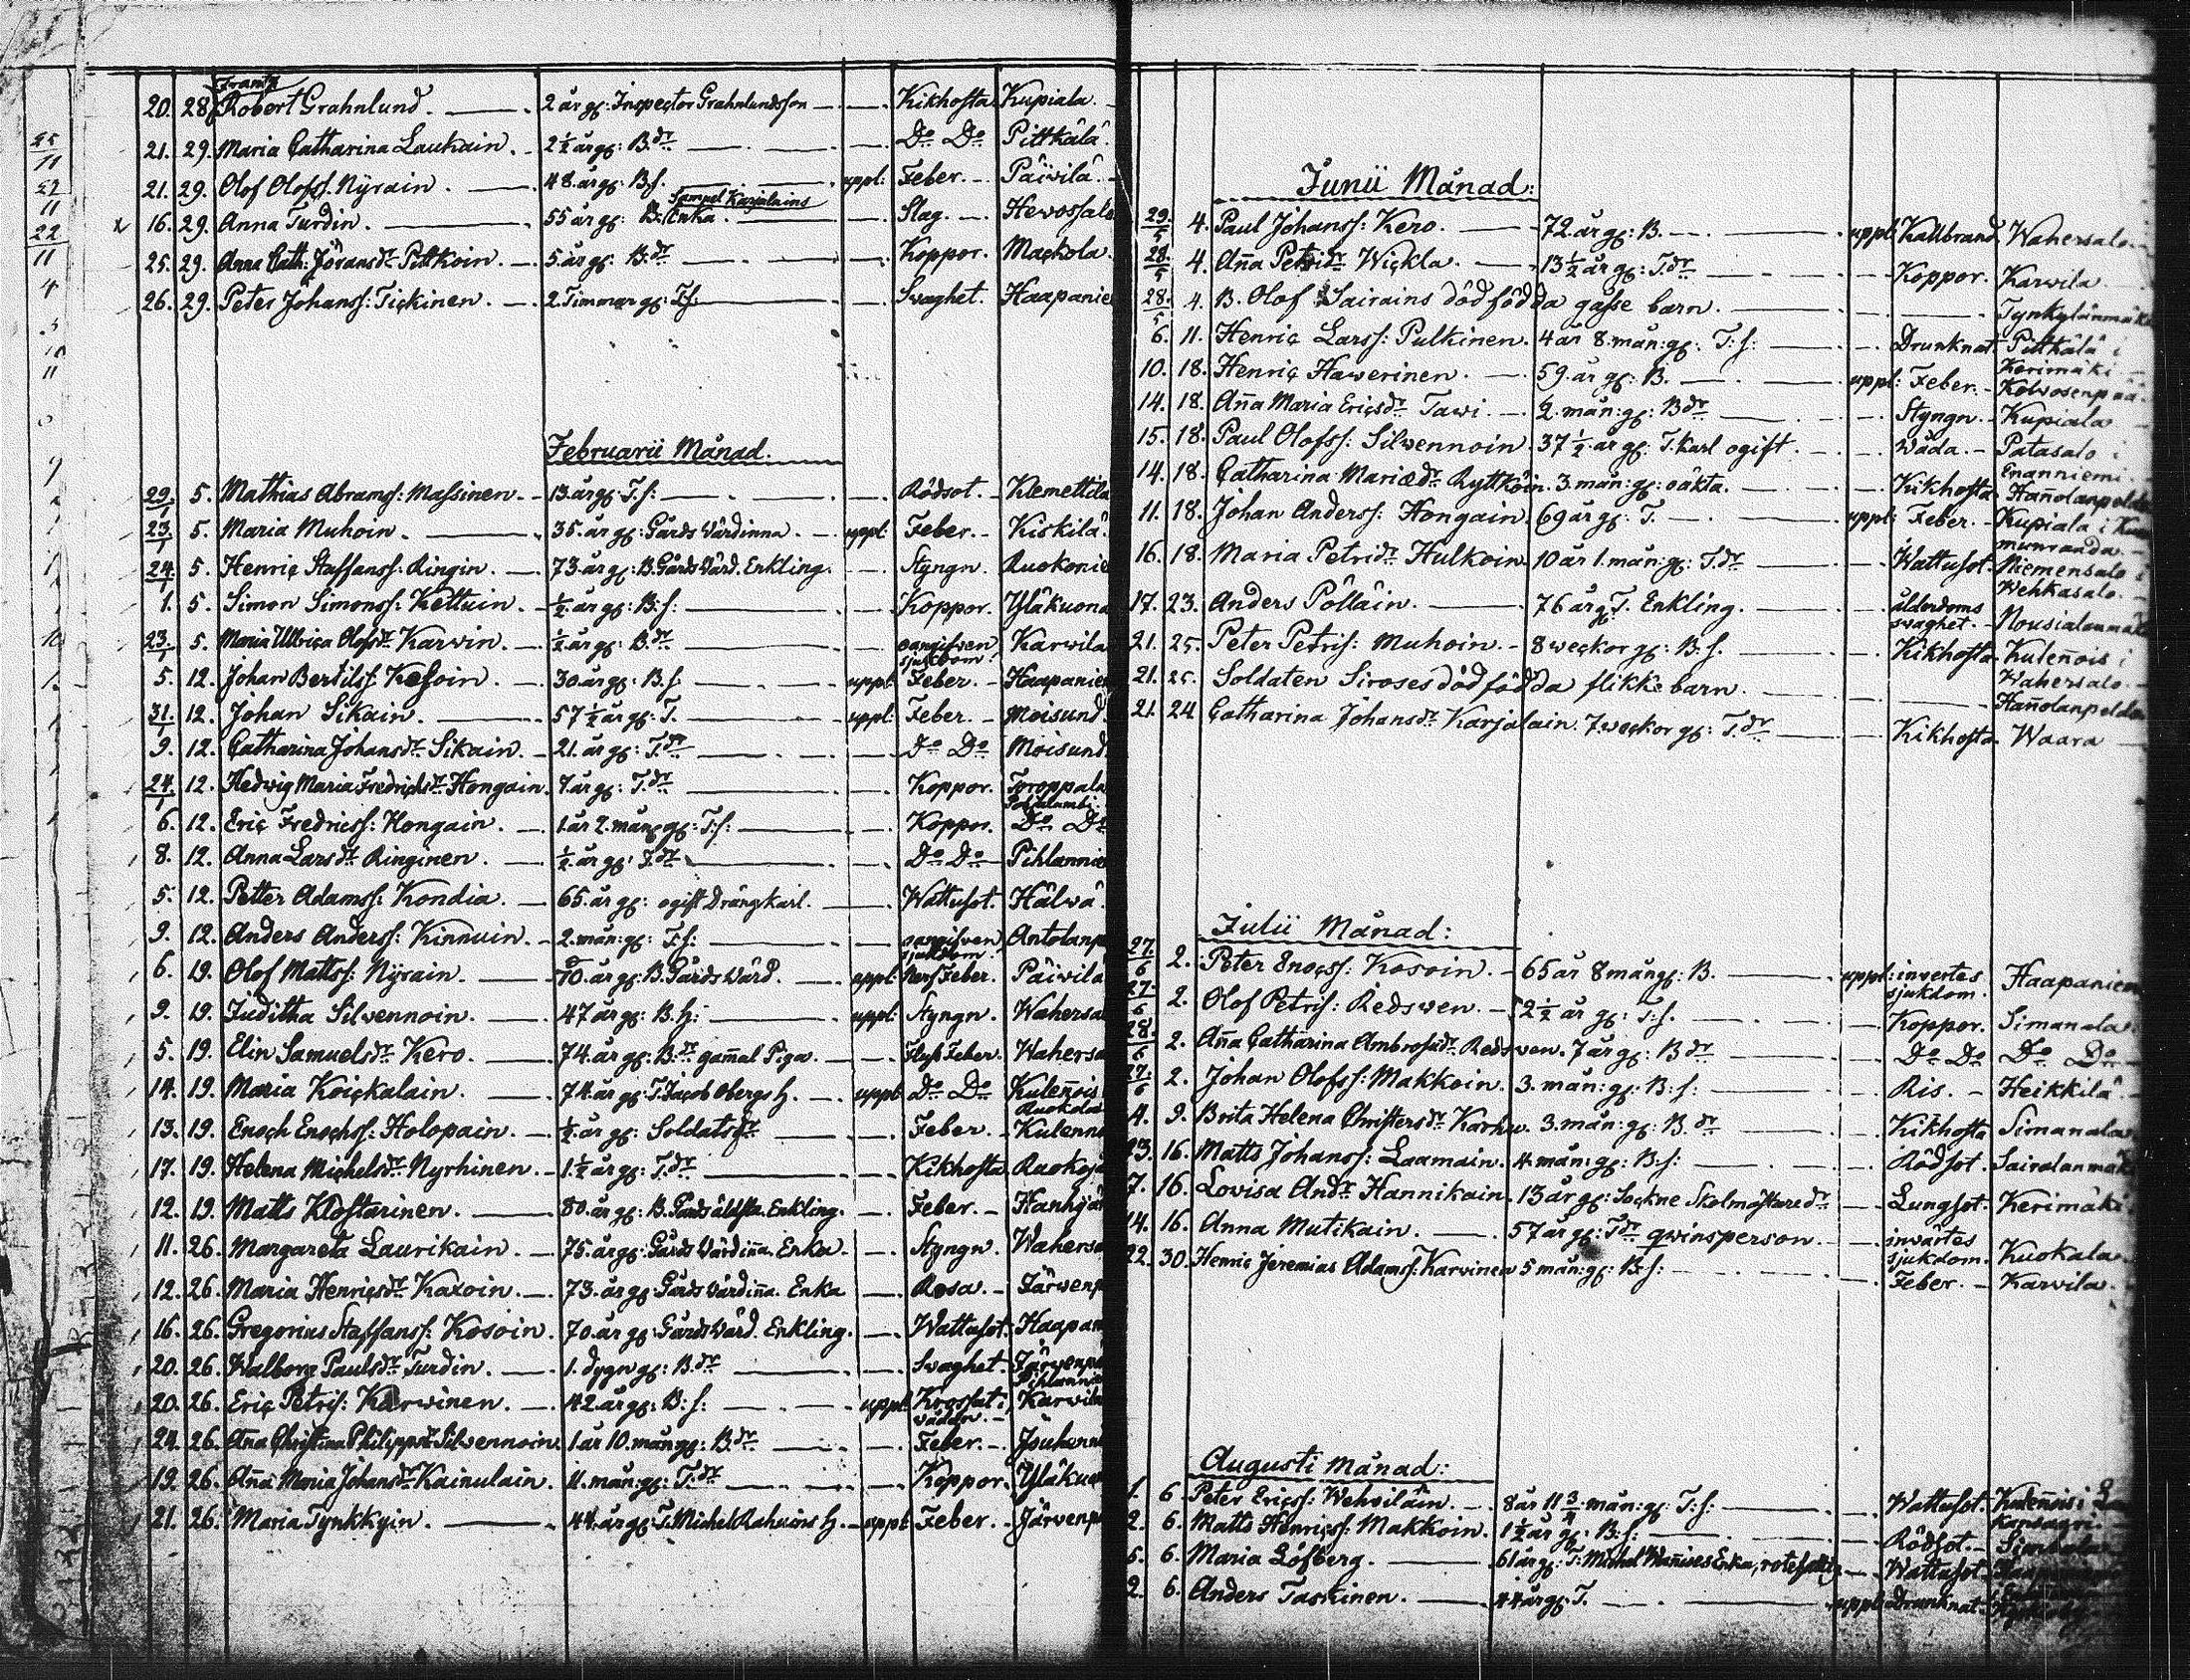 Frantz
20. 28. Robert Grahnlund. 2 år gl: Inspector Grahnlundsson Kikhosta Kupiala.
21. 29. Maria Catharina Laukain. 2½ år gl: B.dr Do Do Pittkälä.
21. 29. Olof Olofss. Nyrain. 48. år gl: B.s. uppl: Feber. Päivilä.
Samuel Karjalains
16. 29. Anna Turdin. 55 år gl: B. Enka. Slag. Hevossalo
25. 29. Anna Cath: Jöransdr Pittkoin. 5. år gl: B.dr Koppor. Mackola.
26. 29. Peter Johanss: Tickinen. 2. Timmar gl: T.s. Svaghet. Haapanie
Februarii Månad.
29/1 5. Mathias Abramss: Massinen. 13. år gl. T.s: Rödsot. Klemettila
23/1 5. Maria Muhoin. 35. år gl: Gårds Värdinna. uppl: Feber. Kiskilä.
24/1 5. Henric Staffanss: Ringin. 73. år gl: B. Gårds Värd. Enkling. Styngn. Ruokonie
1. 5. Simon Simonss: Kettuin. ½ år gl: B.s: Koppor. Yläkuona
23/1 5. Maria Ulrica Olofsdr Karwin. ½ år gl: B.dr oangifven Karvila
sjukdom.
5. 12. Johan Bertilss: Kosoin. 30. år gl: B.s: uppl: Feber. Haapanie
31/1 12. Johan Sikain. 57½ år gl: T. uppl: Feber. Moisund
9. 12. Catharina Johansdr Sikain. 21. år gl: T.dr Do Do Moisund
24/1 12. Hedwig Maria Fredrichsdr Hongain. 7. år gl: T.dr Koppor. Toroppala
6. 12. Eric Fredricss: Hongain. 1. år 2. mån gl: T.s: Koppor. Do Do
8. 12. Anna Larsdr Ringinen. ½ år gl: T.dr Do Do Pihlannie
5. 12. Petter Adamss: Kondia. 65. år gl: ogift Drängkarl. Wattusot. Hälvä.
9. 12. Anders Anderss: Kinnuin. 2. mån: gl: T.s: oangifven Antolanp
sjukdom.
6. 19. Olof Mattss: Nyrain. 70. år gl: B. Gårds Värd. uppl: Nerf Feber. Päivilä
9. 19. Juditha Silvennoin. 47 år gl: B. h: uppl: Styngn. Wahersa
5. 19. Elin Samuelsdr Kero. 74. år gl: B.dr gamal Piga. Fluss Feber. Wahersa
14. 19. Maria Koickalain. 74. år gl: T. Jacob Obergs h. uppl: Do Do Kulennois
Ruokola
13. 19. Enoch Enochss: Holopain. ½ år gl: Soldats Feber. Kulenno
17. 19. Helena Michelsdr Nyrhinen. 1½ år gl: T.dr Kikhosta Ruokoja
12. 19. Matts Klostarinen. 80. år gl: B. Enkling. Feber. Hanhijär
11. 26. Margareta Laurikain. 75. år gl: Gårds Värdinna. Enka. Styngn. Wahersa
12. 26. Maria Henricsdr Kaxoin. 73. år gl: Gårds Värdinna. Enka Rosa. Järvenp
16. 26. Gregorius Staffanss: Kosoin. 70. år gl: Gårds Värd. Enkling. Wattusot. Haapan
20. 26. Walborg Paulsdr Turdin. 1. dygn gl: B.dr Svaghet. Järvenpä
20. 26. Eric Petris: Karwinen. 42. år gl: B.s: uppl: Krossat i Karvila
vådan.
24. 26. Ana Christina Philippsdr Silvennoin. 1. år 10. mån gl: B.dr Feber. Jouhenn
19. 26. Anna Maria Johansdr Kainulain. 11. mån: gl: T.dr Koppor. Yläkuo
21. 26. Maria Tynkkyin. 44. år gl: T. Michel Rahuins h. uppl: Feber. Järvenp
Junii Månad:
29/5 4. Paul Johanss: Kero. 72. år gl: B. uppl: Kallbrand. Wahersalo.
28/5 4. Anna Petridr Wickla. 13½ år gl: T.dr Koppor. Karvila
28/5 4. B. Olof Sairains dödfödda gosse barn. Tynkylänmäki
6. 11. Henric Larss: Pulkinen. 4 år 8. mån: gl: T.s: Drunknat. Pittkälä i
Kerimäki
10. 18. Henric Hawerinen. 59. år gl: B. uppl: Feber. Kolvosenpää.
14. 18. Anna Maria Ericsdr Tawi. ½ mån: gl: Bdr Styngn. Kupiala
15. 18. Paul Olofss: Silwennoin. 37½ år gl: T. karl ogift. Wåda. Patasalo i
Enanniemi.
14. 18. Catharina Mariædr Ryttköin. 3. mån: gl: oäkta. Kikhosta. Hanolanpeldo
11. 18. Johan Anderss: Hongain. 69 år gl: T. uppl: Feber. Kupiala i
16. 18. Maria Petridr Hulkoin. 10 år 1. mån: gl: T.dr Wattusot. Niemensalo i
Wehkasalo.
17. 23. Anders Pölläin. 76 år gl T. Enkling. ålderdoms
svaghet. Nousialanmäki
21. 25. Peter Petris: Muhoin. 8 weckor gl: B.s. Kikhosta. Kulennois i
Wahersalo.
21. 25. Soldaten Siroses dödfödda flikke barn. Hanolanpeldo
21. 24. Catharina Johansdr Karjalain. 7. weckor gl: T.dr Kikhosta. Waara
Julii Månad:
27/6 2. Peter Enocss: Kosoin. 65 år 8 mån gl: B. uppl: invertes Haapaniem
sjukdom.
27/6 2. Olof Petris: Redswen. 2½ år gl: T.s. Koppor. Simanala
28/6 2. Anna Catharina Ambrosiidr Redswen. 7 år gl: Bdr Do Do Do Do
27/6 2. Johan Olofss: Makkoin. 3. mån: gl: B.s: Ris. Heikkilä.
4. 9. Brita Helena Christersdr Karhu. 3. mån: gl: B.dr Kikhosta Simanala
13. 16. Matts Johanss: Laamain. 4. mån: gl: B.s: Rödsot. Sairalanmäki
7. 16. Lovisa Andr Hannikain. 13 år gl: Sockne Skolmästaredr Lungsot. Kerimäki
14. 16. Anna Mutikain. 57 år gl: Tdr qwinsperson. invärtes
sjukdom. Kuokala
22. 30. Henric Jeremias Adamss: Karvinen 5 mån: gl: B.s: Feber. Karvila.
Augusti Månad:
1. 6. Peter Ericss: Wehviläin. 8 år 11¾ mån: gl: T.s: Wattusot. Kulennois i
2. 6. Matts Henricss: Makkoin. 1½ år gl: B.s: Rödsot. Simanala
5. 6. Maria Löfberg. 61 år gl: T: Michel Enka, rotefattig Wattusot.
2. 6. Anders Taskinen. 44 år gl: T. uppl: Drunknat.